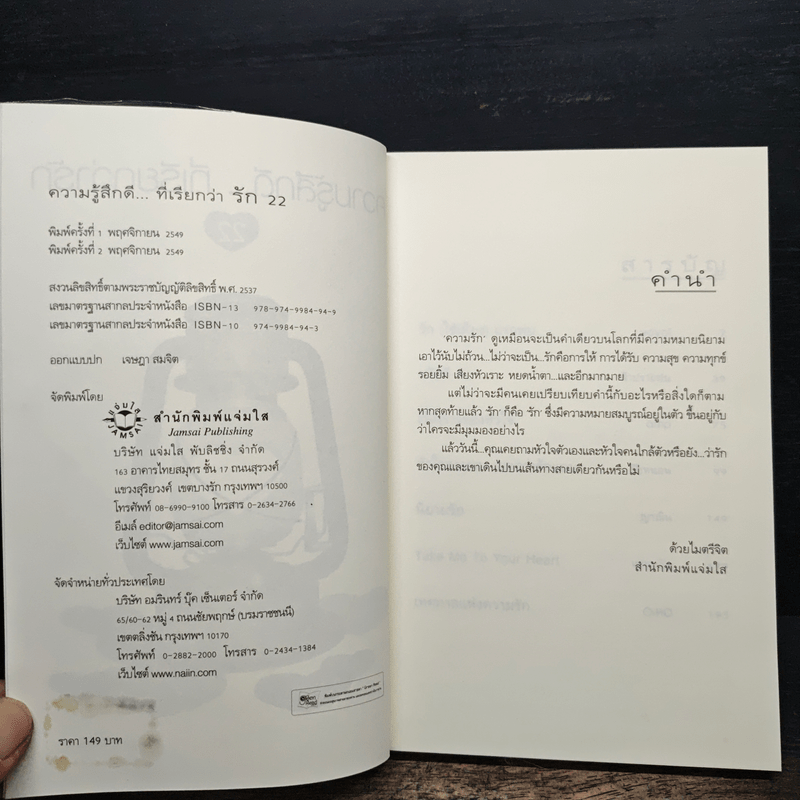 ความรู้สึกดี... ที่เรียกว่า รัก 22
พิมพ์ครั้งที่ 1 พฤศจิกายน 2549
พิมพ์ครั้งที่ 2 พฤศจิกายน 2549
สงวนลิขสิทธิ์ตามพระราชบัญญัติลิขสิทธิ์ พ.ศ. 2537
เลขมาตรฐานสากลประจำหนังสือ ISBN-13 978-974-9984-94-9
เลขมาตรฐานสากลประจำหนังสือ ISBN-10 974-9984-94-3
ออกแบบปก เจษฎา สมจิต
จัดพิมพ์โดย
สำนักพิมพ์แจ่มใส
Jamsai Publishing
บริษัท แจ่มใส พับลิชชิ่ง จำกัด
163 อาคารไทยสมุทร ชั้น 17 ถนนสุรวงศ์
แขวงสุริยวงศ์ เขตบางรัก กรุงเทพฯ 10500
โทรศัพท์ 08-6990-9100 โทรสาร 0-2634-2766
อีเมล์ editor@jamsai.com
เว็บไซต์ www.jamsai.com
จัดจำหน่ายทั่วประเทศโดย
บริษัท อมรินทร์ บุ๊ค เซ็นเตอร์ จำกัด
65/60-62 หมู่ 4 ถนนชัยพฤกษ์ (บรมราชชนนี)
เขตตลิ่งชัน กรุงเทพฯ 10170
โทรศัพท์ 0-2882-2000 โทรสาร 0-2434-1384
เว็บไซต์ www.naiin.com
ราคา 149 บาท
คำนำ
'ความรัก' ดูเหมือนจะเป็นคำเดียวบนโลกที่มีความหมายนิยาม
เอาไว้นับไม่ถ้วน...ไม่ว่าจะเป็น...รักคือการให้ การได้รับ ความสุข ความทุกข์
รอยยิ้ม เสียงหัวเราะ หยดน้ำตา...และอีกมากมาย
แต่ไม่ว่าจะมีคนเคยเปรียบเทียบคำนี้กับอะไรหรือสิ่งใดก็ตาม
หากสุดท้ายแล้ว 'รัก' ก็คือ 'รัก' ซึ่งมีความหมายสมบูรณ์อยู่ในตัว ขึ้นอยู่กับ
ว่าใครจะมีมุมมองอย่างไร
แล้ววันนี้...คุณเคยถามหัวใจตัวเองและหัวใจคนใกล้ตัวหรือยัง...ว่ารัก
ของคุณและเขาเดินไปบนเส้นทางสายเดียวกันหรือไม่
ด้วยไมตรีจิต
สำนักพิมพ์แจ่มใส